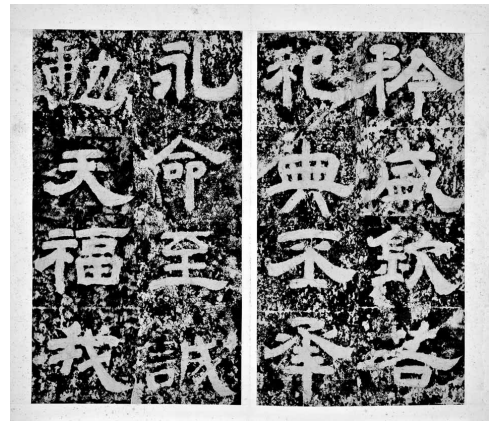 矜盛欽若
祀典丕承
永命至誠
動天福我